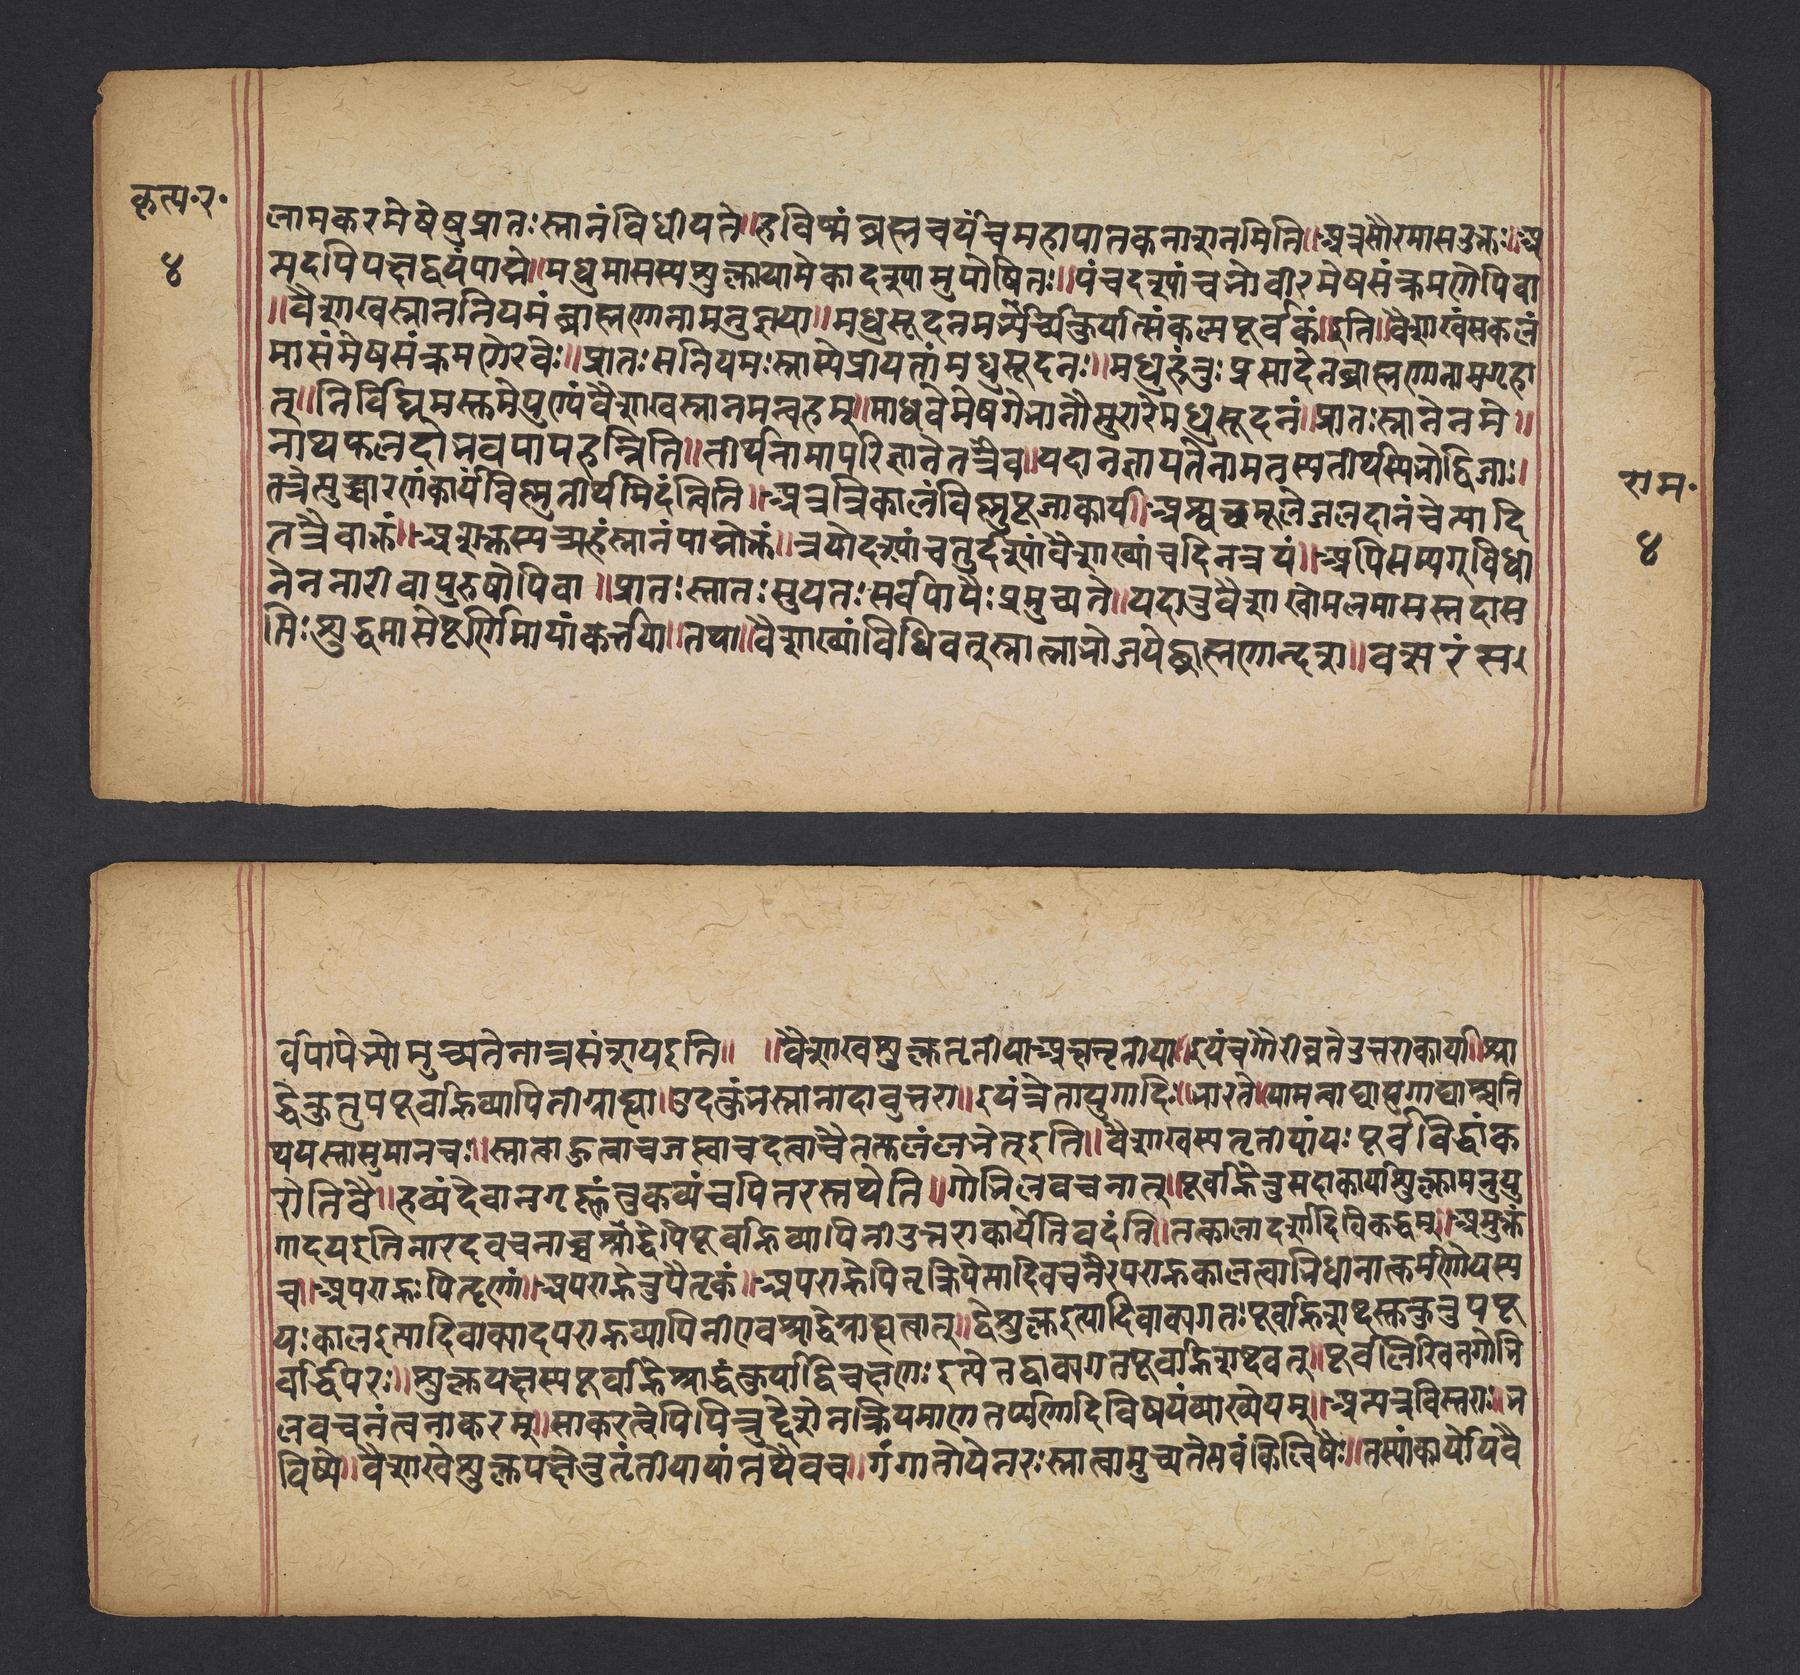 कृत्य॰र॰
४
लामकरमेषेषुप्रातःस्नानंविधीयते॥हविष्यंब्रह्मचर्यंचमहापातकनाशनमिति॥अत्रसौरमासउक्तः॥अ
मदपिपक्षद्वयंपाद्मे॥मधुमासस्यशुक्लायामेकादश्यामुपोषितः॥पंचदश्यांचभोवीरमेषसंक्रमणेपिवा
॥वैशाखस्नाननियमंब्राह्मणानामनुज्ञया॥मधुसूदनमभ्यर्च्यकुर्यात्संकल्पपूर्वकं॥इति॥वैशाखंसकलं
मासंमेषसंक्रमणेरवेः॥प्रातःसनियमःस्नास्येप्रीयतांमधुसूदनः॥मधुहंतुःप्रसादेनब्राह्मणानामगृहा
त्॥निर्विघ्नमस्तुमेपुण्यंवैशाखस्नानमन्वहम्॥माधवेमेषगेभानौमुरारेमधुसूदनं॥प्रातःस्नानेनमे॥
नाथफलदोभवपापहन्निति॥तीर्थनामापरिज्ञानेतत्रैव॥यदानज्ञायतेनामतस्यतीर्थस्यभोद्विजाः।
तत्रेत्युच्चारणंकार्यंविष्णुतीर्थमिदंन्विति॥अत्रत्रिकालंविष्णुपूजाकार्या॥अश्वत्थमूलेजलदानंचेत्यादि
तत्रैवोक्तं॥अशक्तस्यत्र्यहंस्नानंपाद्मोक्तं॥त्रयोदश्यांचतुर्दश्यांवैशाख्यांचदिनत्रयं॥अपिसम्यग्विधा
नेननारीवापुरुषोपिवा॥प्रातःस्नातःसुयतःसर्वपापैःप्रमुच्यते॥यदातुवैशाखोमलमासस्तदास
मिःशुद्धमासेपूर्णिमायांकर्तव्या॥तथा॥वैशाख्यांविधिवत्स्नात्वाभोजयेद्ब्राह्मणान्दश॥वत्सरंस।
राम॰
४
र्वपापेभ्योमुच्यतेनात्रसंशयइति॥॥वैशाखशुक्लतृतीयाअक्षतृतीया॥इयंचगौरीव्रतेउत्तराकार्या॥श्रा
द्धेकुतुपपूर्वाह्णव्यापिनीग्राह्या॥उदकुंभस्नानादावुत्तरा॥इयंत्रेतायुगादिः॥भारते॥यामन्वाद्यायुगाद्याश्चति
थयस्तासुमानवः॥स्नात्वाहुत्वाचजप्त्वाचदत्वाचैतत्फलंलभेत्इति॥वैशाखस्यतृतीयांयःपूर्वविद्धांक
रोतिवै॥हव्यंदेवानगृह्णंतुकव्यंचपितरस्तथेति॥गोभिलवचनात्॥पूर्वाह्णेतुसदाकार्याशुक्लामनुयु
गादयइतिनारदवचनाच्चश्राद्धेपिपूर्वाह्णव्यापिनीउत्तराकार्येतिवदंति॥तत्कालादर्शादिविरुद्धम्॥अमुक्तं
च॥अपराह्णःपितॄणां॥अपराह्णेतुपैतृकं॥अपराह्णेपितृक्रियेत्यादिवचनैरपराह्णकालत्वाभिधानात्कर्मणोयस्य
यःकालइत्यादिवाक्यादपराह्णव्यापिनीएवश्राद्धेग्राह्यत्वात्॥द्वेशुक्लइत्यादिवाक्यगतःपूर्वाह्णशब्दस्तुकुतुपपू
र्वार्द्धपरः॥शुक्लपक्षस्यपूर्वाह्णेश्राद्धंकुर्याद्विचक्षणःइत्येतद्वाक्यगतपूर्वाह्णशब्दवत्॥पूर्वलिखितगोभि
लवचनंत्वनाकरम्॥साकरत्वेपिपित्र्युद्देशेनक्रियमाणतर्पणादिविषयंव्याख्येयम्॥अन्यत्रविस्तरः॥भ
विष्ये॥वैशाखेशुक्लपक्षेतुतृतीयायांतथैवच॥गंगातोयेनरःस्नात्वामुच्यतेसर्वकिल्बिषैः॥तस्यांकार्योयवै